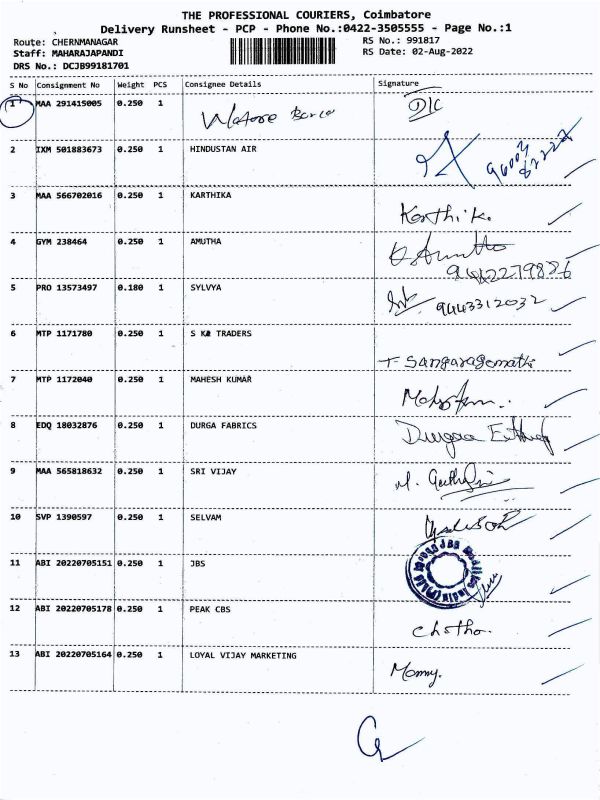 THE PROFESSIONAL COURIERS, Coimbatore
Delivery Runsheet - PCP - Phone No.:0422-3505555 - Page No.:1
Route: CHERNMANAGAR RS No.: 991817
Staff: MAHARAJAPANDI RS Date: 02-Aug-2022
DRS No.: DCJB99181701
S No Consignment No Weight PCS Consignee Details Signature
1 MAA 291415005 0.250 1 D/C
2 IXM 501883673 0.250 1 HINDUSTAN AIR
3 MAA 566702016 0.250 1 KARTHIKA Karthi.K.
4 GYM 238464 0.250 1 AMUTHA
9442279886
5 PRO 13573497 0.180 1 SYLVYA 9443312032
6 MTP 1171780 0.250 1 S K TRADERS
T. Sangaragomathi
7 MTP 1172040 0.250 1 MAHESH KUMAR
8 EDQ 18032876 0.250 1 DURGA FABRICS Durgaa
9 MAA 565818632 0.250 1 SRI VIJAY
10 SVP 1390597 0.250 1 SELVAM
11 ABI 20220705151 0.250 1 JBS
12 ABI 20220705178 0.250 1 PEAK CBS
13 ABI 20220705164 0.250 1 LOYAL VIJAY MARKETING